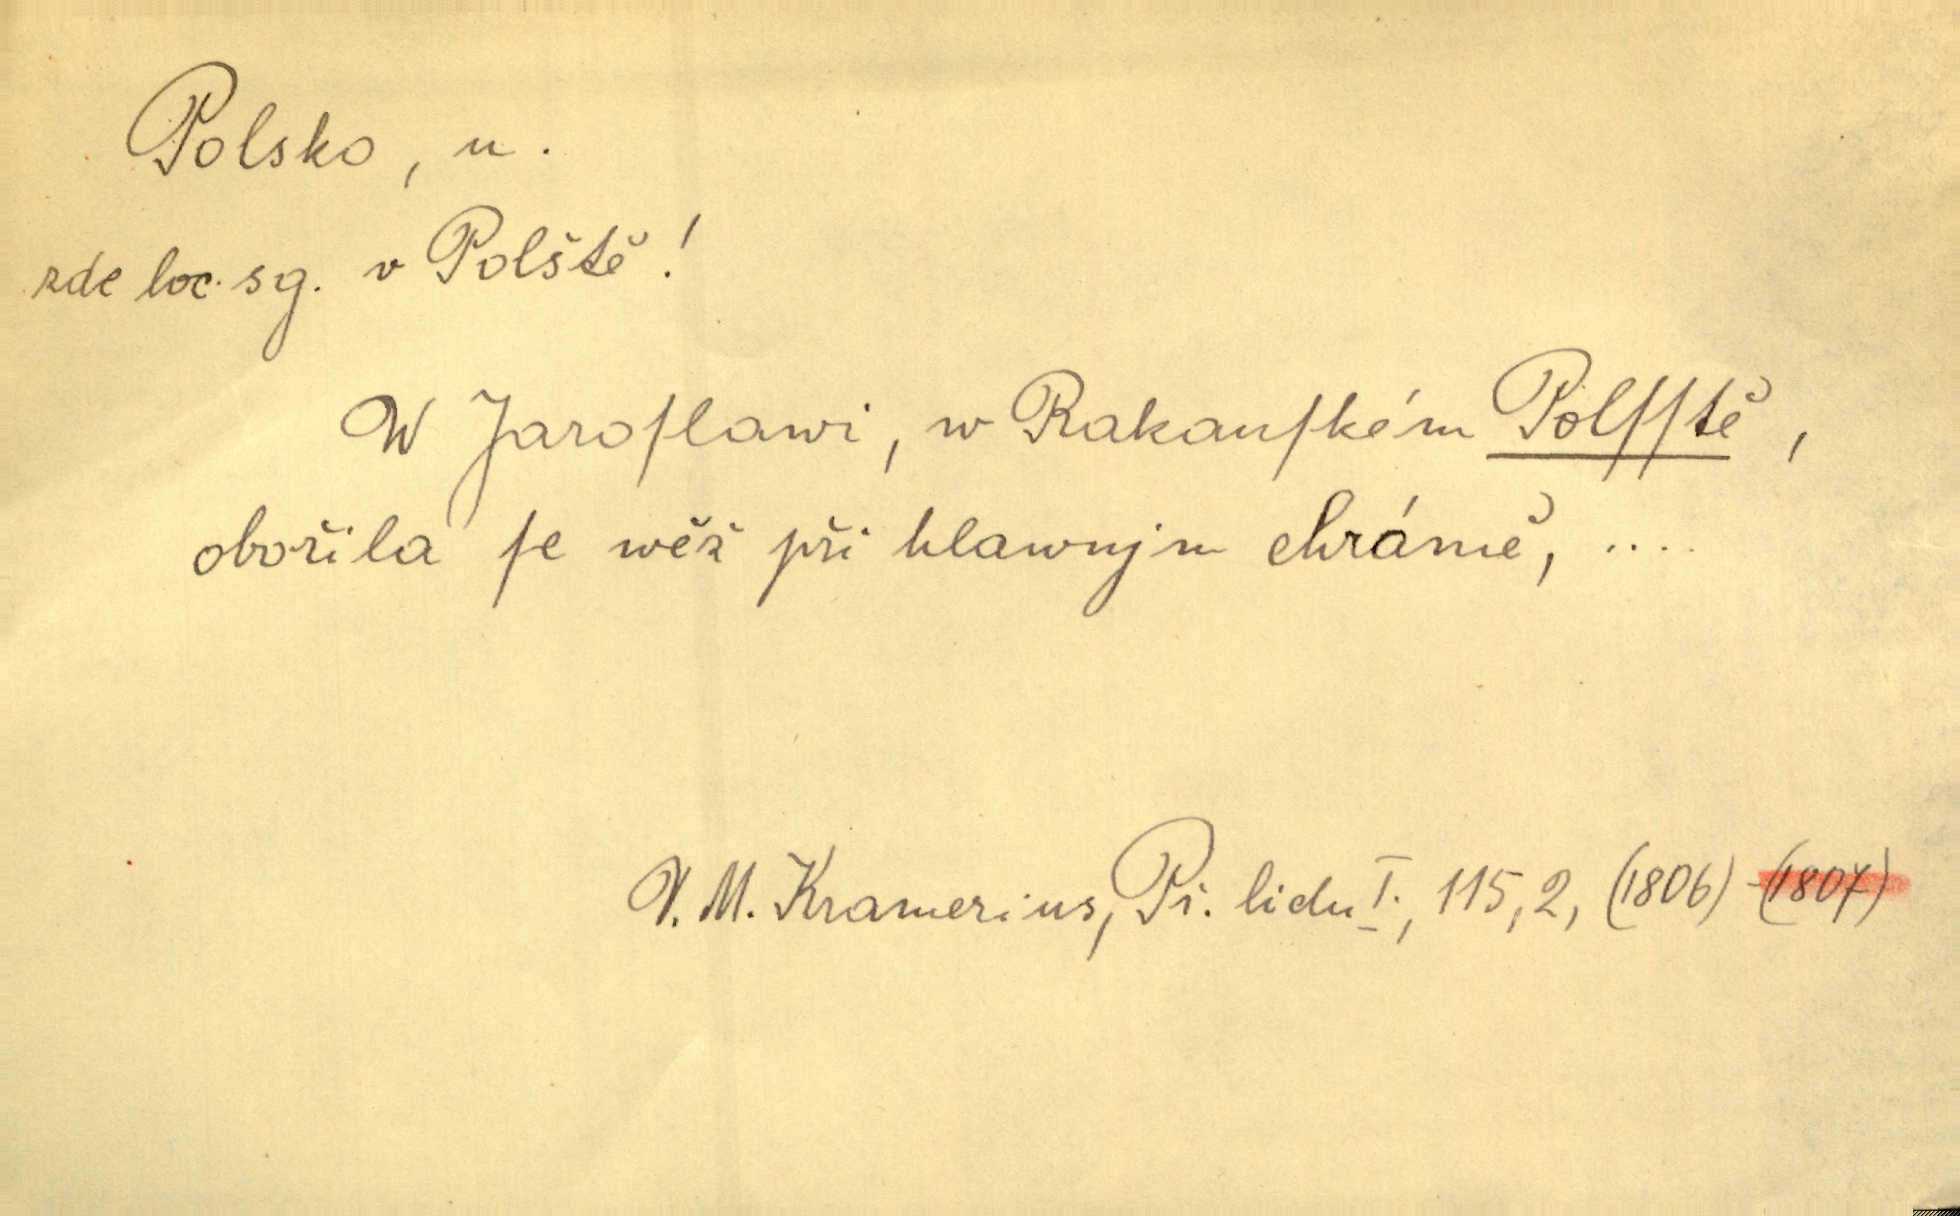 Polsko, n.
zde loc. sg. v Polště!
W Jaroſlawi, w Rakauſkém Polſſtě,
obořila ſe wěž při hlawnjm chrámě, ....
V. M. Kramerius, Př. lidu I., 115, 2, (1806) - (1807)